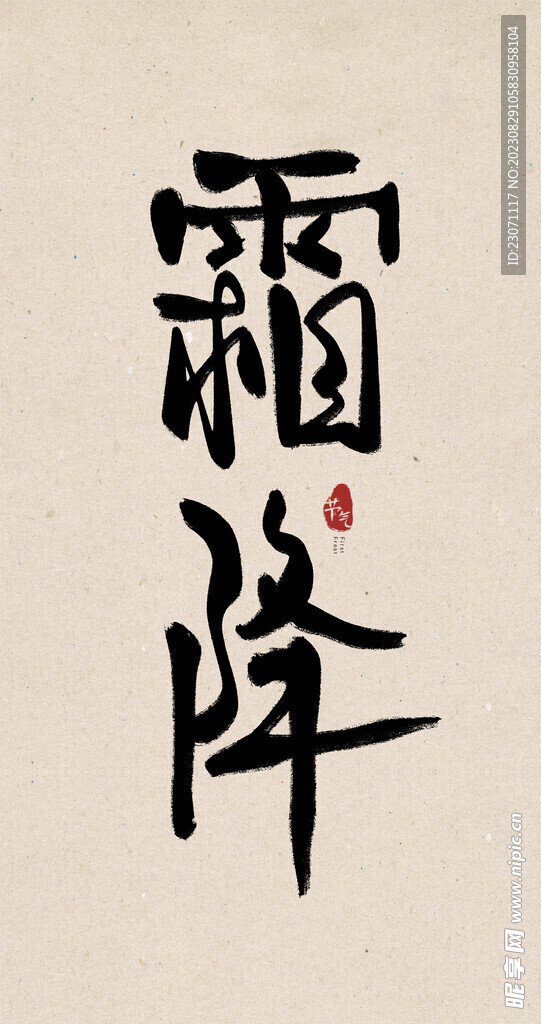 霜降
节气
First
Frost
ID:23071117 NO:20230829105830958104
昵享网 www.nipic.cn